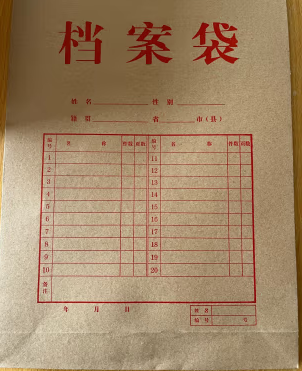 档案袋
姓名 性别
籍贯 省 市(县)
编号 名称 份数 页数 编号 名称 份数 页数
1 11
2 12
3 13
4 14
5 15
6 16
7 17
8 18
9 19
10 20
备注
年 月 日
姓名
编号 号